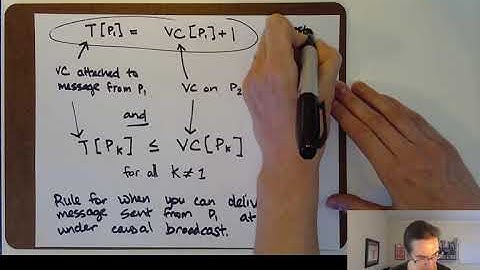 T[P₁] = VC[P₁]+1
VC attached to
message from P₁
VC on P₂
and
T[Pₖ] ≤ VC[Pₖ]
for all k≠1
Rule for when you can
message sent from P₁ at
under causal broadcast.